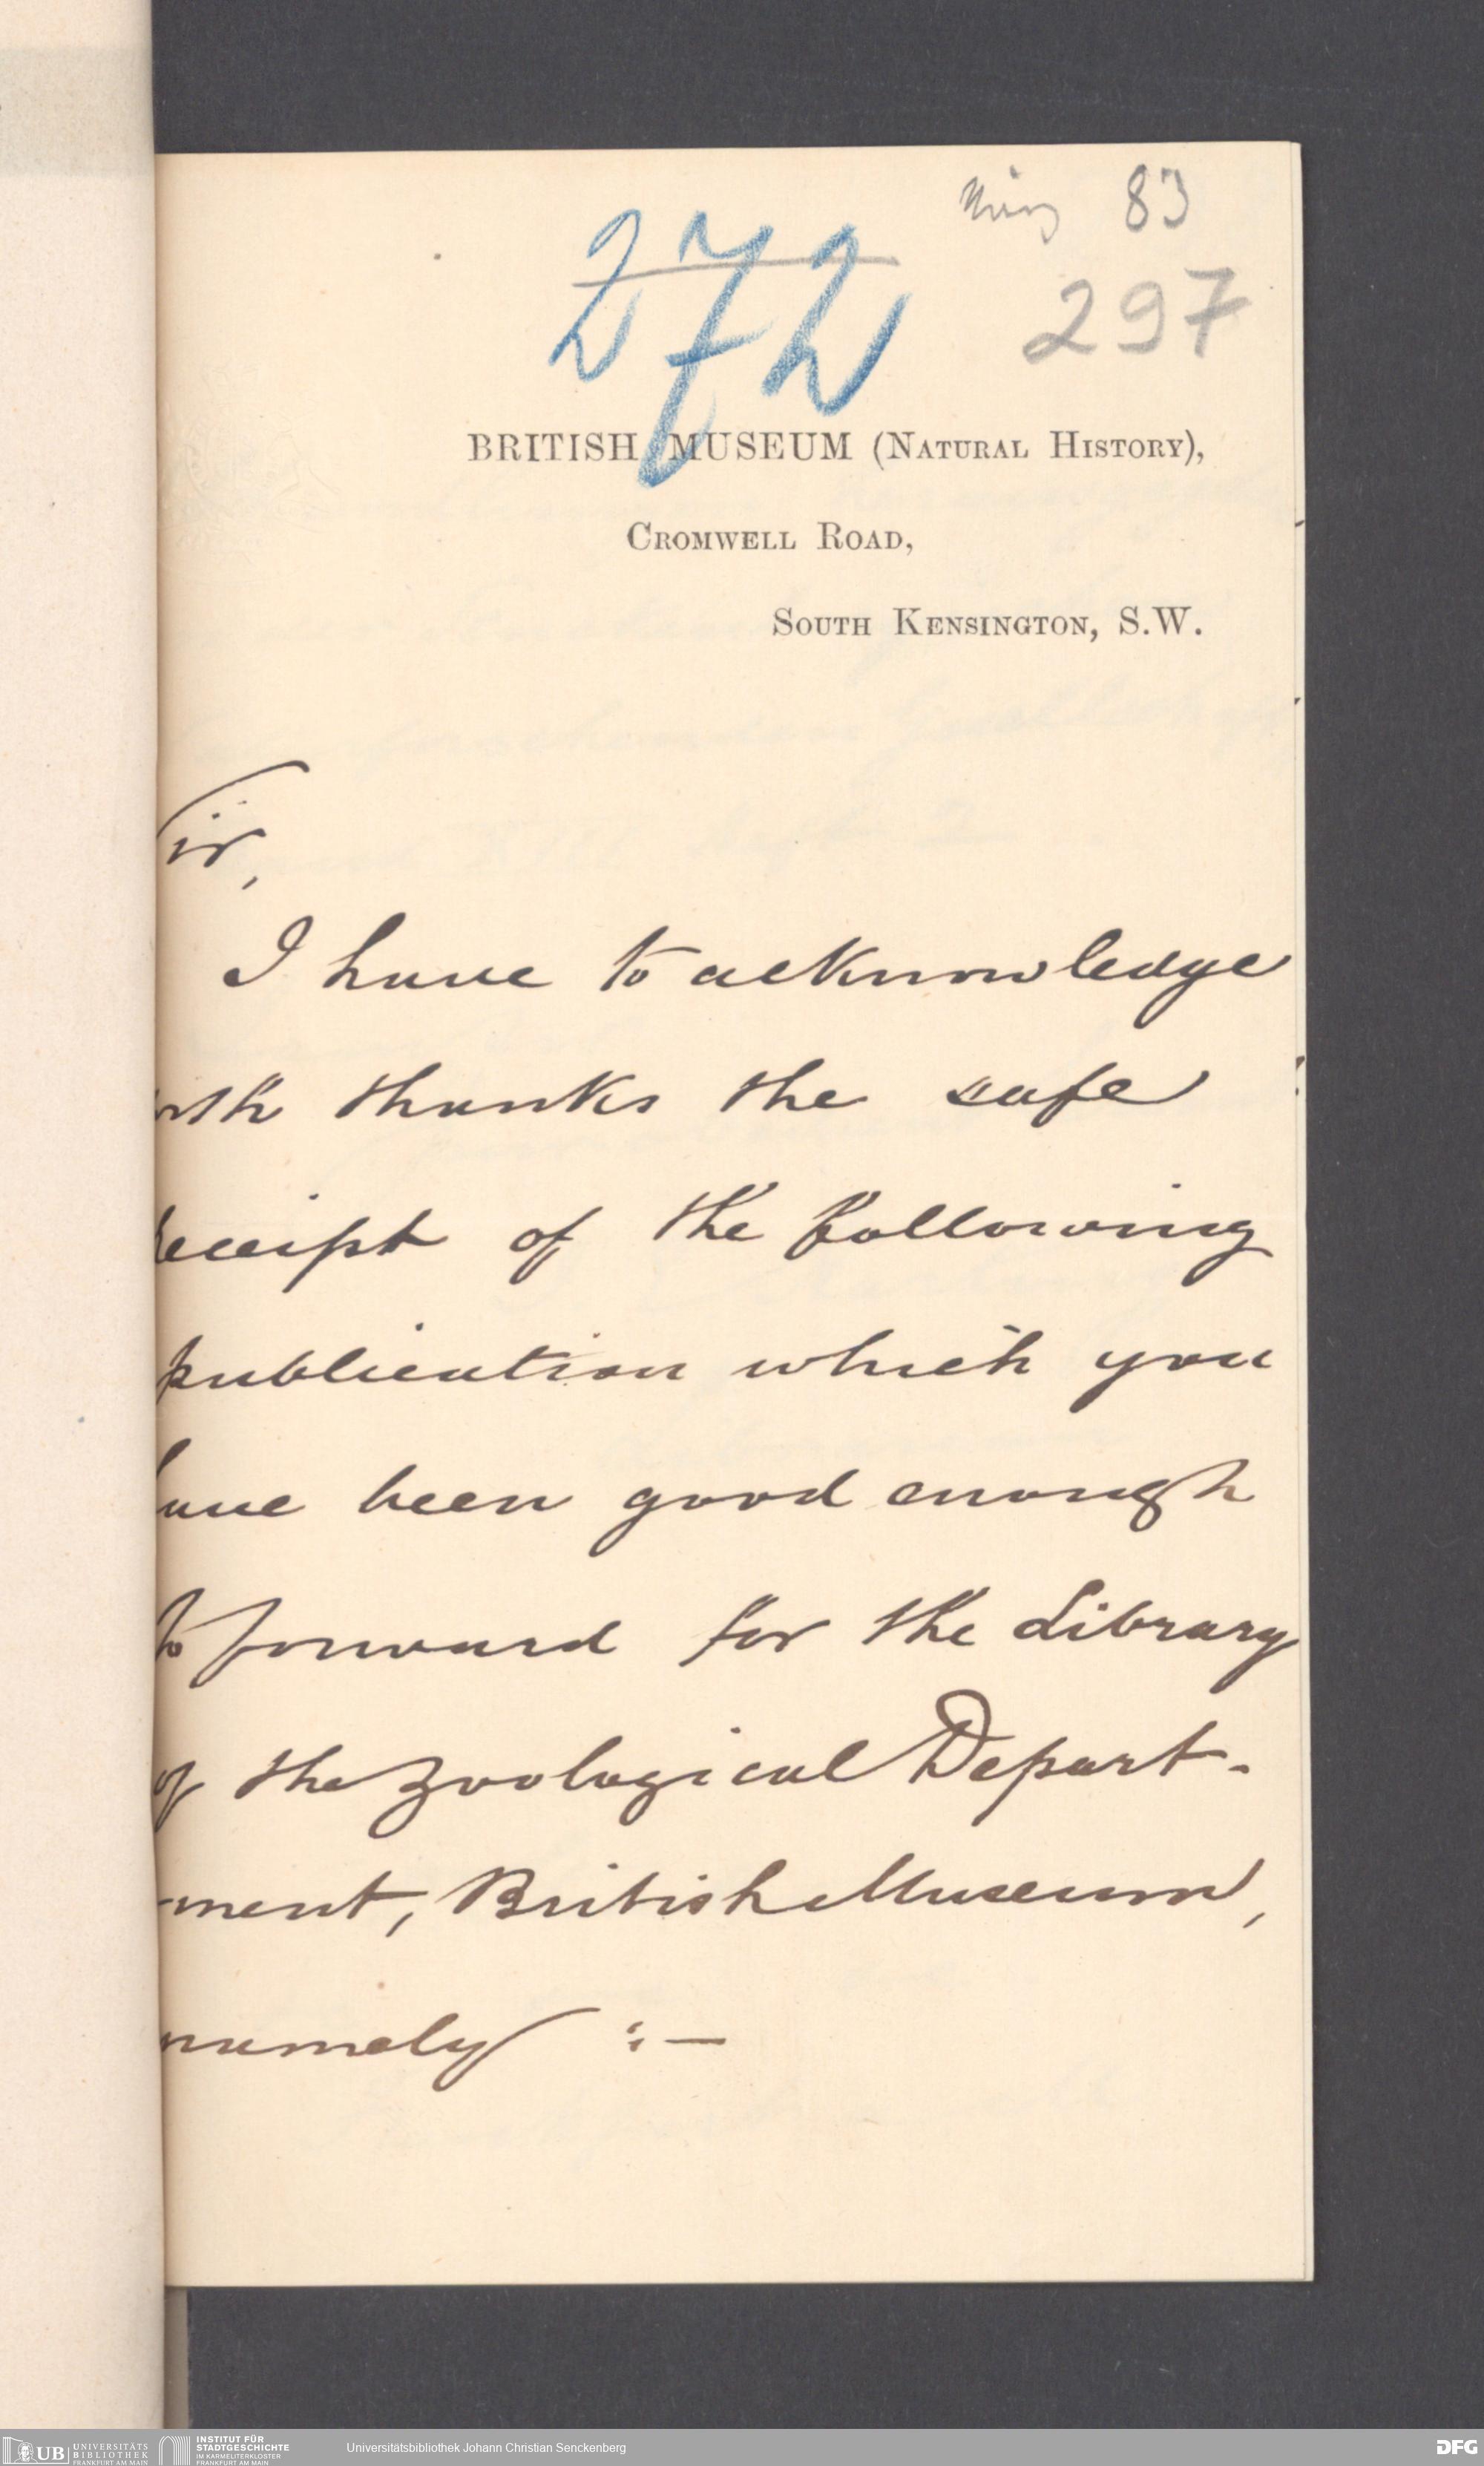 März 83
272
297
BRITISH MUSEUM (NATURAL HISTORY),
CROMWELL ROAD,
SOUTH KENSINGTON, S.W.
Sir,
I have to acknowledge
with thanks the safe
receipt of the following
publication which you
have been good enough
to forward for the Library
of the Zoological Depart-
-ment, British Museum,
namely :—
UB UNIVERSITÄTS BIBLIOTHEK FRANKFURT AM MAIN
INSTITUT FÜR STADTGESCHICHTE IM KARMELITERKLOSTER FRANKFURT AM MAIN
Universitätsbibliothek Johann Christian Senckenberg
DFG